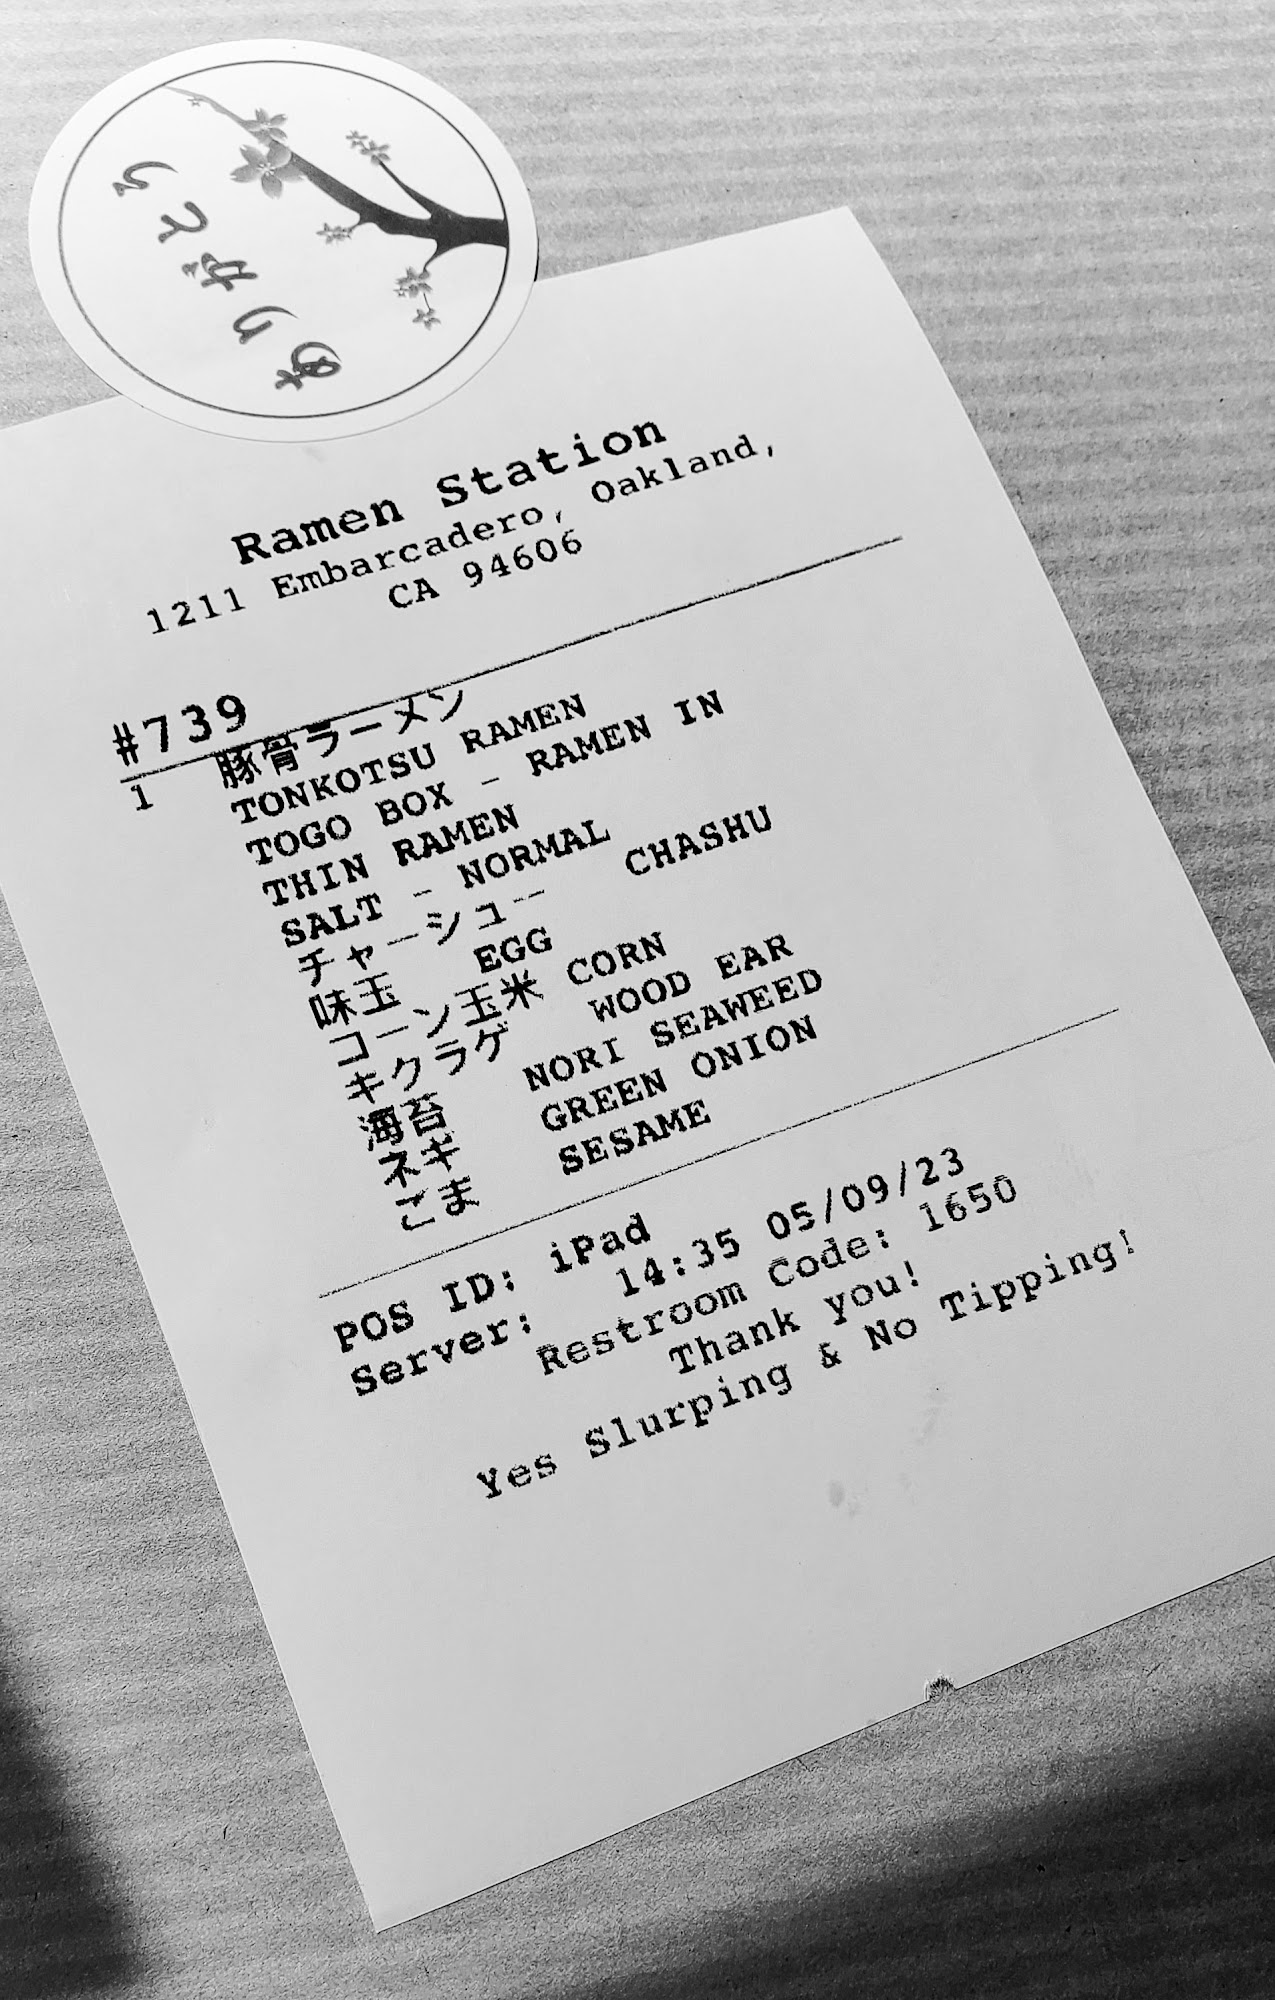 ありがとう
Ramen Station
1211 Embarcadero, Oakland,
CA 94606
#739
1 豚骨ラーメン
TONKOTSU RAMEN
TOGO BOX - RAMEN IN
THIN RAMEN
SALT - NORMAL
チャーシュー CHASHU
味玉 EGG
コーン玉米 CORN
キクラゲ WOOD EAR
海苔 NORI SEAWEED
ネギ GREEN ONION
ごま SESAME
POS ID: iPad
Server: 14:35 05/09/23
Restroom Code: 1650
Thank you!
Yes Slurping & No Tipping!